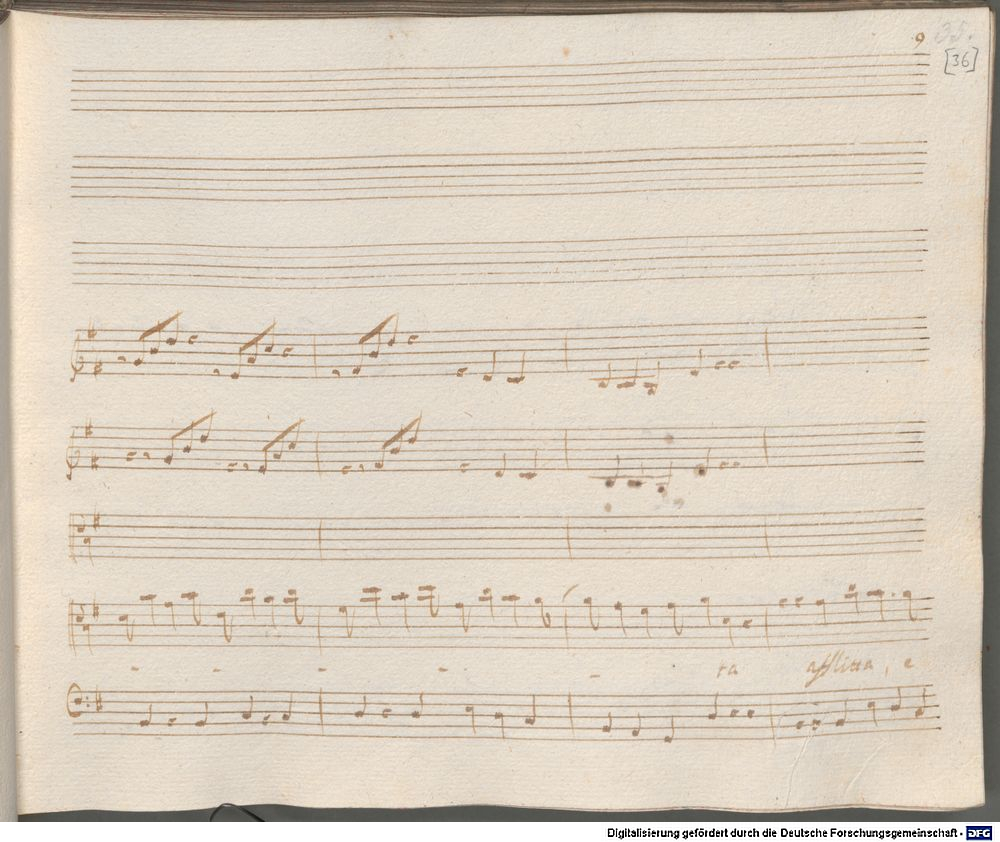 9 35.
[36]
- - - - - ra afflitta, e
Digitalisierung gefördert durch die Deutsche Forschungsgemeinschaft - DFG